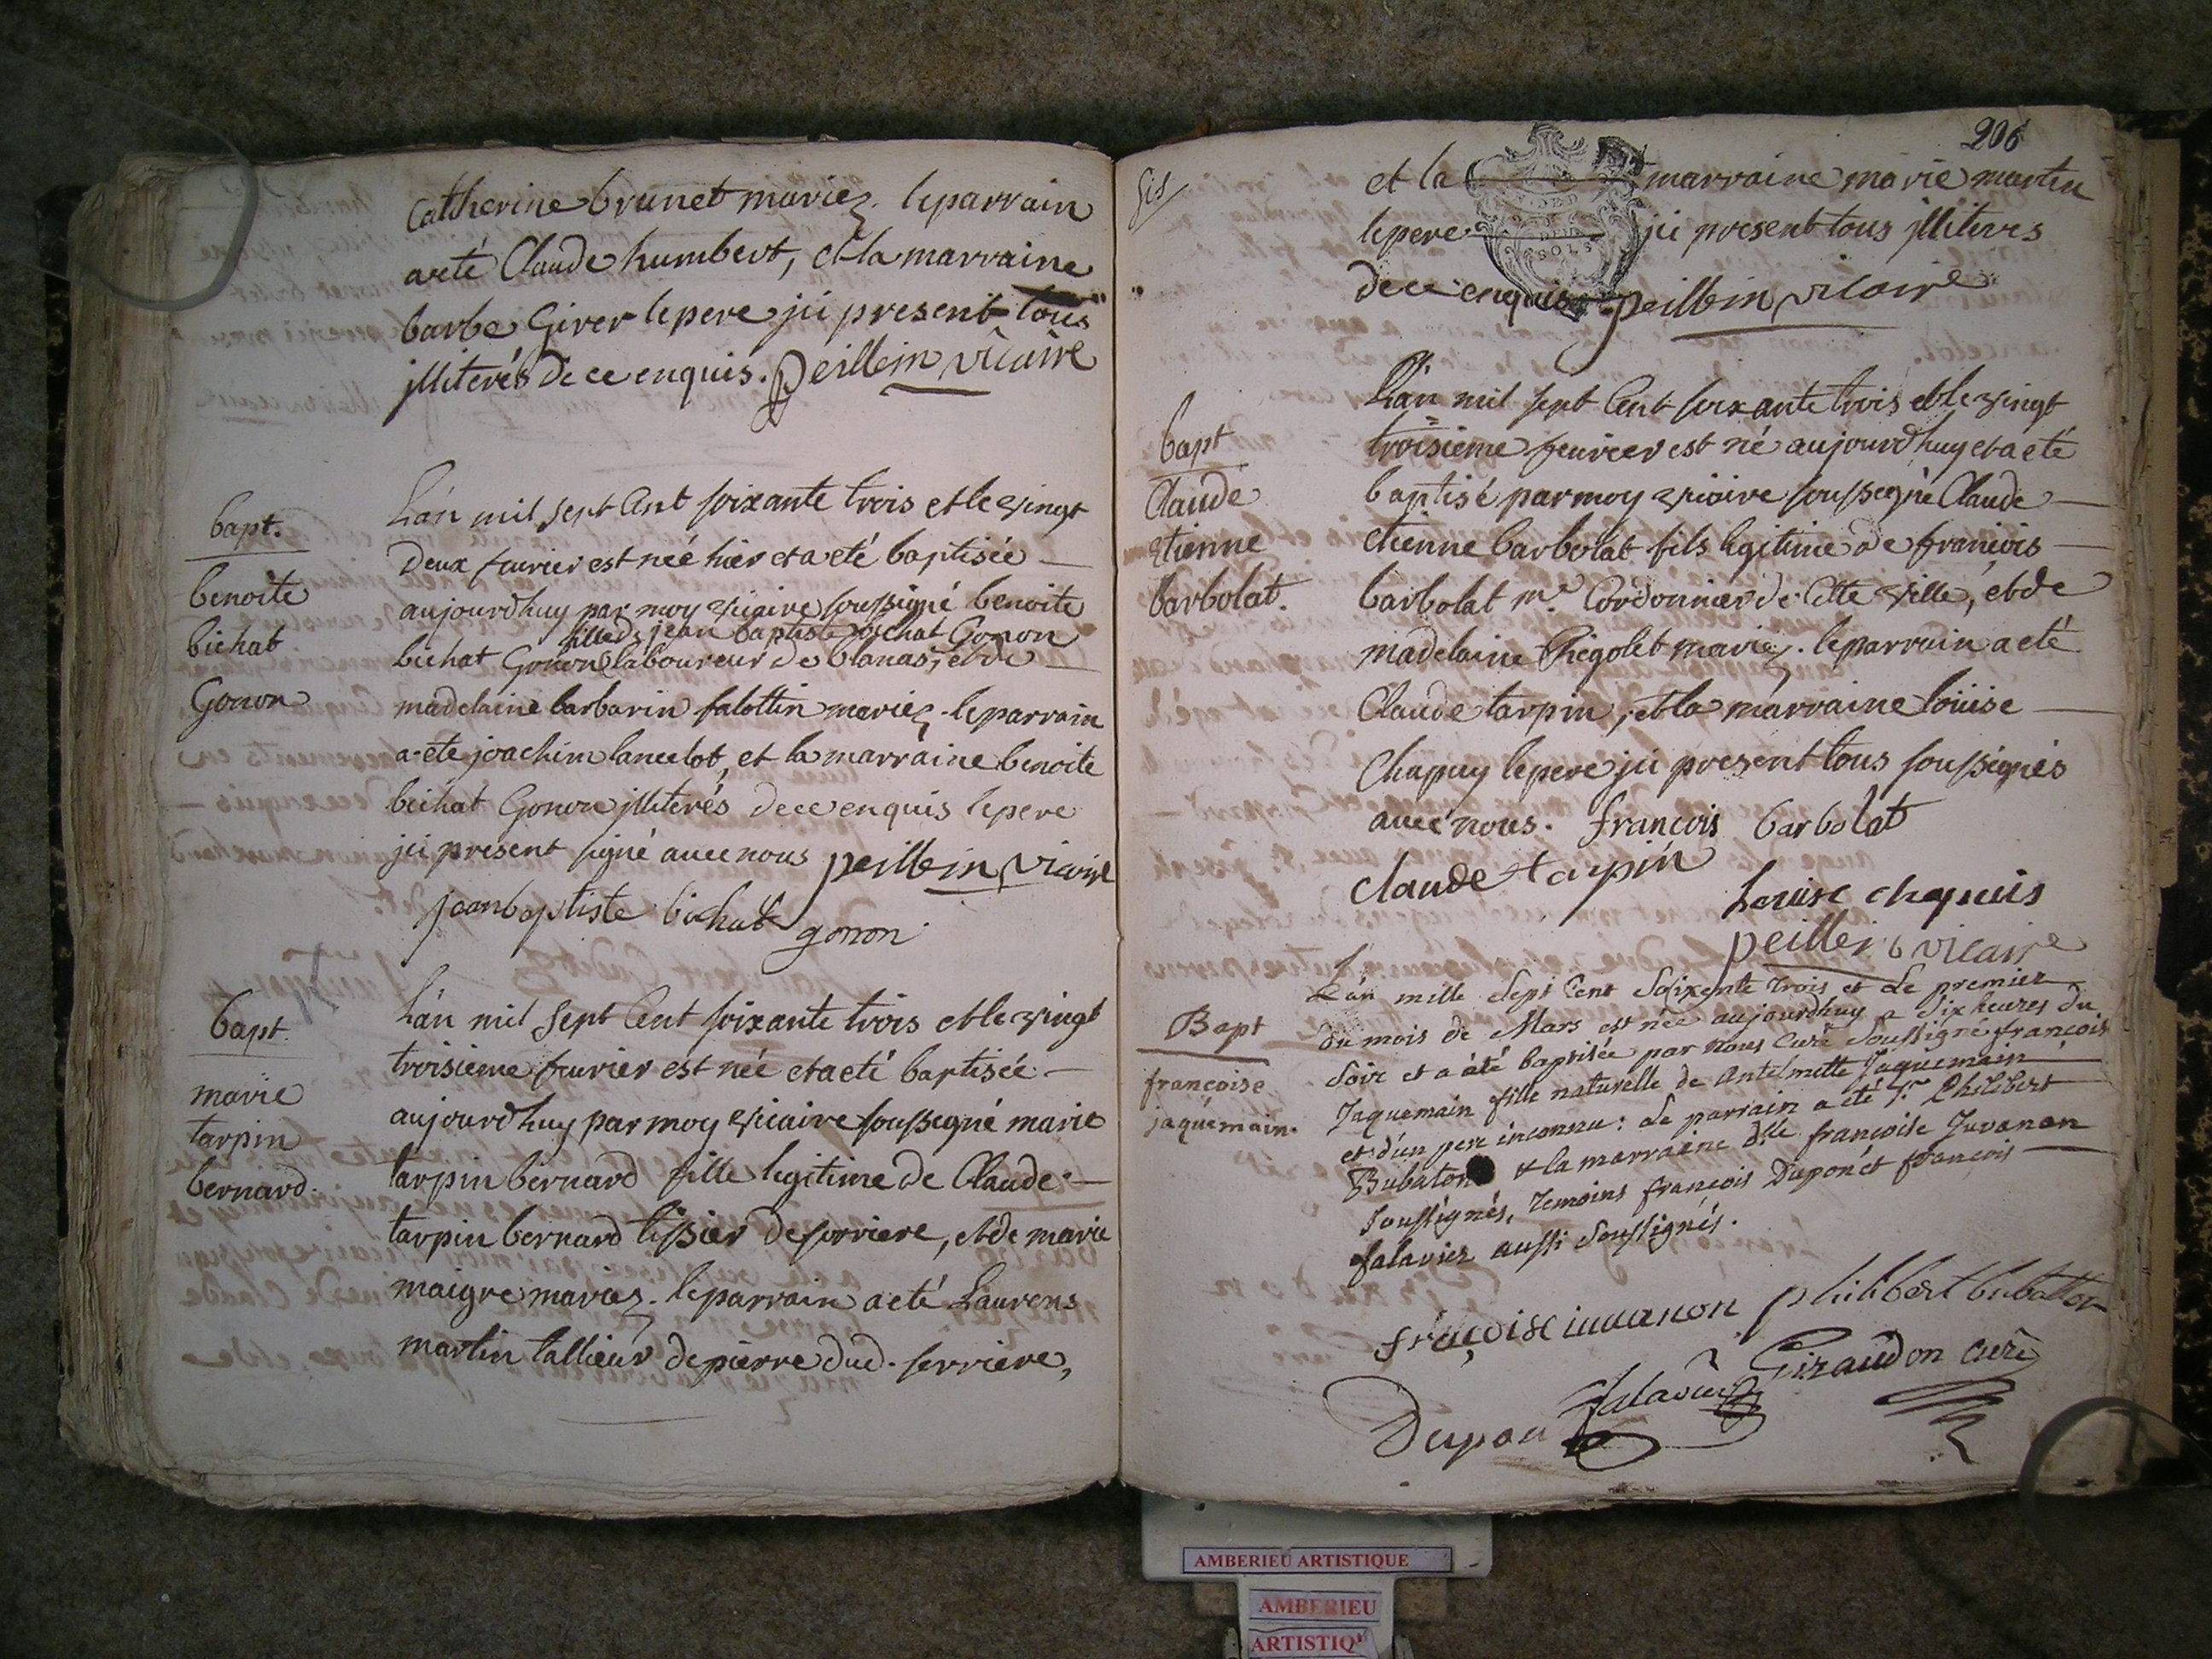 Catherine brunet mariez. le parrain
a eté Claude humbert, et la marraine
barbe Girer le pere ici present tous
illiterés de ce enquis. Peillein vicaire
bapt.
benoite
bichat
Gonon
L'an mil sept Cent soixante trois et le vingt
Deux feurier est née hier et a eté baptisée
aujourdhuy par moy vicaire soussigné benoite
fille de jean baptiste bichat Gonon
bichat Gonon laboureur de blanas, et de
madelaine barbarin falottin mariez. le parrain
a eté joachim lancelot, et la marraine benoite
bichat Gonon illiterés de ce enquis le pere
ici present signé avec nous peillein vicaire
jean baptiste bichat gonon
bapt.
marie
tarpin
bernard.
L'an mil sept Cent soixante trois et le vingt
troisieme feurier est née et a eté baptisée
aujourdhuy par moy vicaire soussigné marie
tarpin bernard fille legitime de Claude
tarpin bernard tissier de serriere, et de marie
maigre mariez. le parrain a eté Laurens
martin tallieur de pierre dud. serriere,
206
et la marraine marie martin
le pere ici present tous illiteres
de ce enquis peillein vicaire
DEUX
SOLS
bapt
Claude
etienne
barbolat.
L'an mil sept Cent soixante trois et le vingt
troisieme feurier est né aujourdhuy et a eté
baptisé par moy vicaire soussigné Claude
etienne barbolat fils legitime de françois
barbolat me. Cordonnier de Cette ville, et de
madelaine Rigolet mariez. le parrain a eté
Claude tarpin, et la marraine loüise
Chapuy le pere ici present tous soussignés
avec nous. françois barbolat
claude tarpin
Louise chapuis
peillein vicaire
Bapt
françoise
jaquemain.
L'an mille Sept Cent Soixente trois et Le premier
du mois de Mars est née aujourdhuy a Six heures du
Soir et a été baptisée par nous Curé Soussigné françoise
Jaquemain fille naturelle de Antelmette Jaquemain
et d'un pere inconnu: Le parrain a été Sr. Philibert
Bubaton & la marraine dlle. françoise Juvanon
soussignés, temoins françois Dupon et françois
falavier aussi Soussignés.
françoise iuuanon philibert bubatton
Giraudon curé
Dupon falavier
AMBERIEU ARTISTIQUE
AMBERIEU
ARTISTIQ